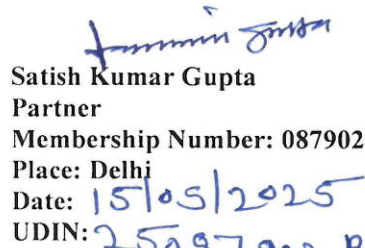 Satish Kumar Gupta
Partner
Membership Number: 087902
Place: Delhi
Date: 15/05/2025
UDIN: